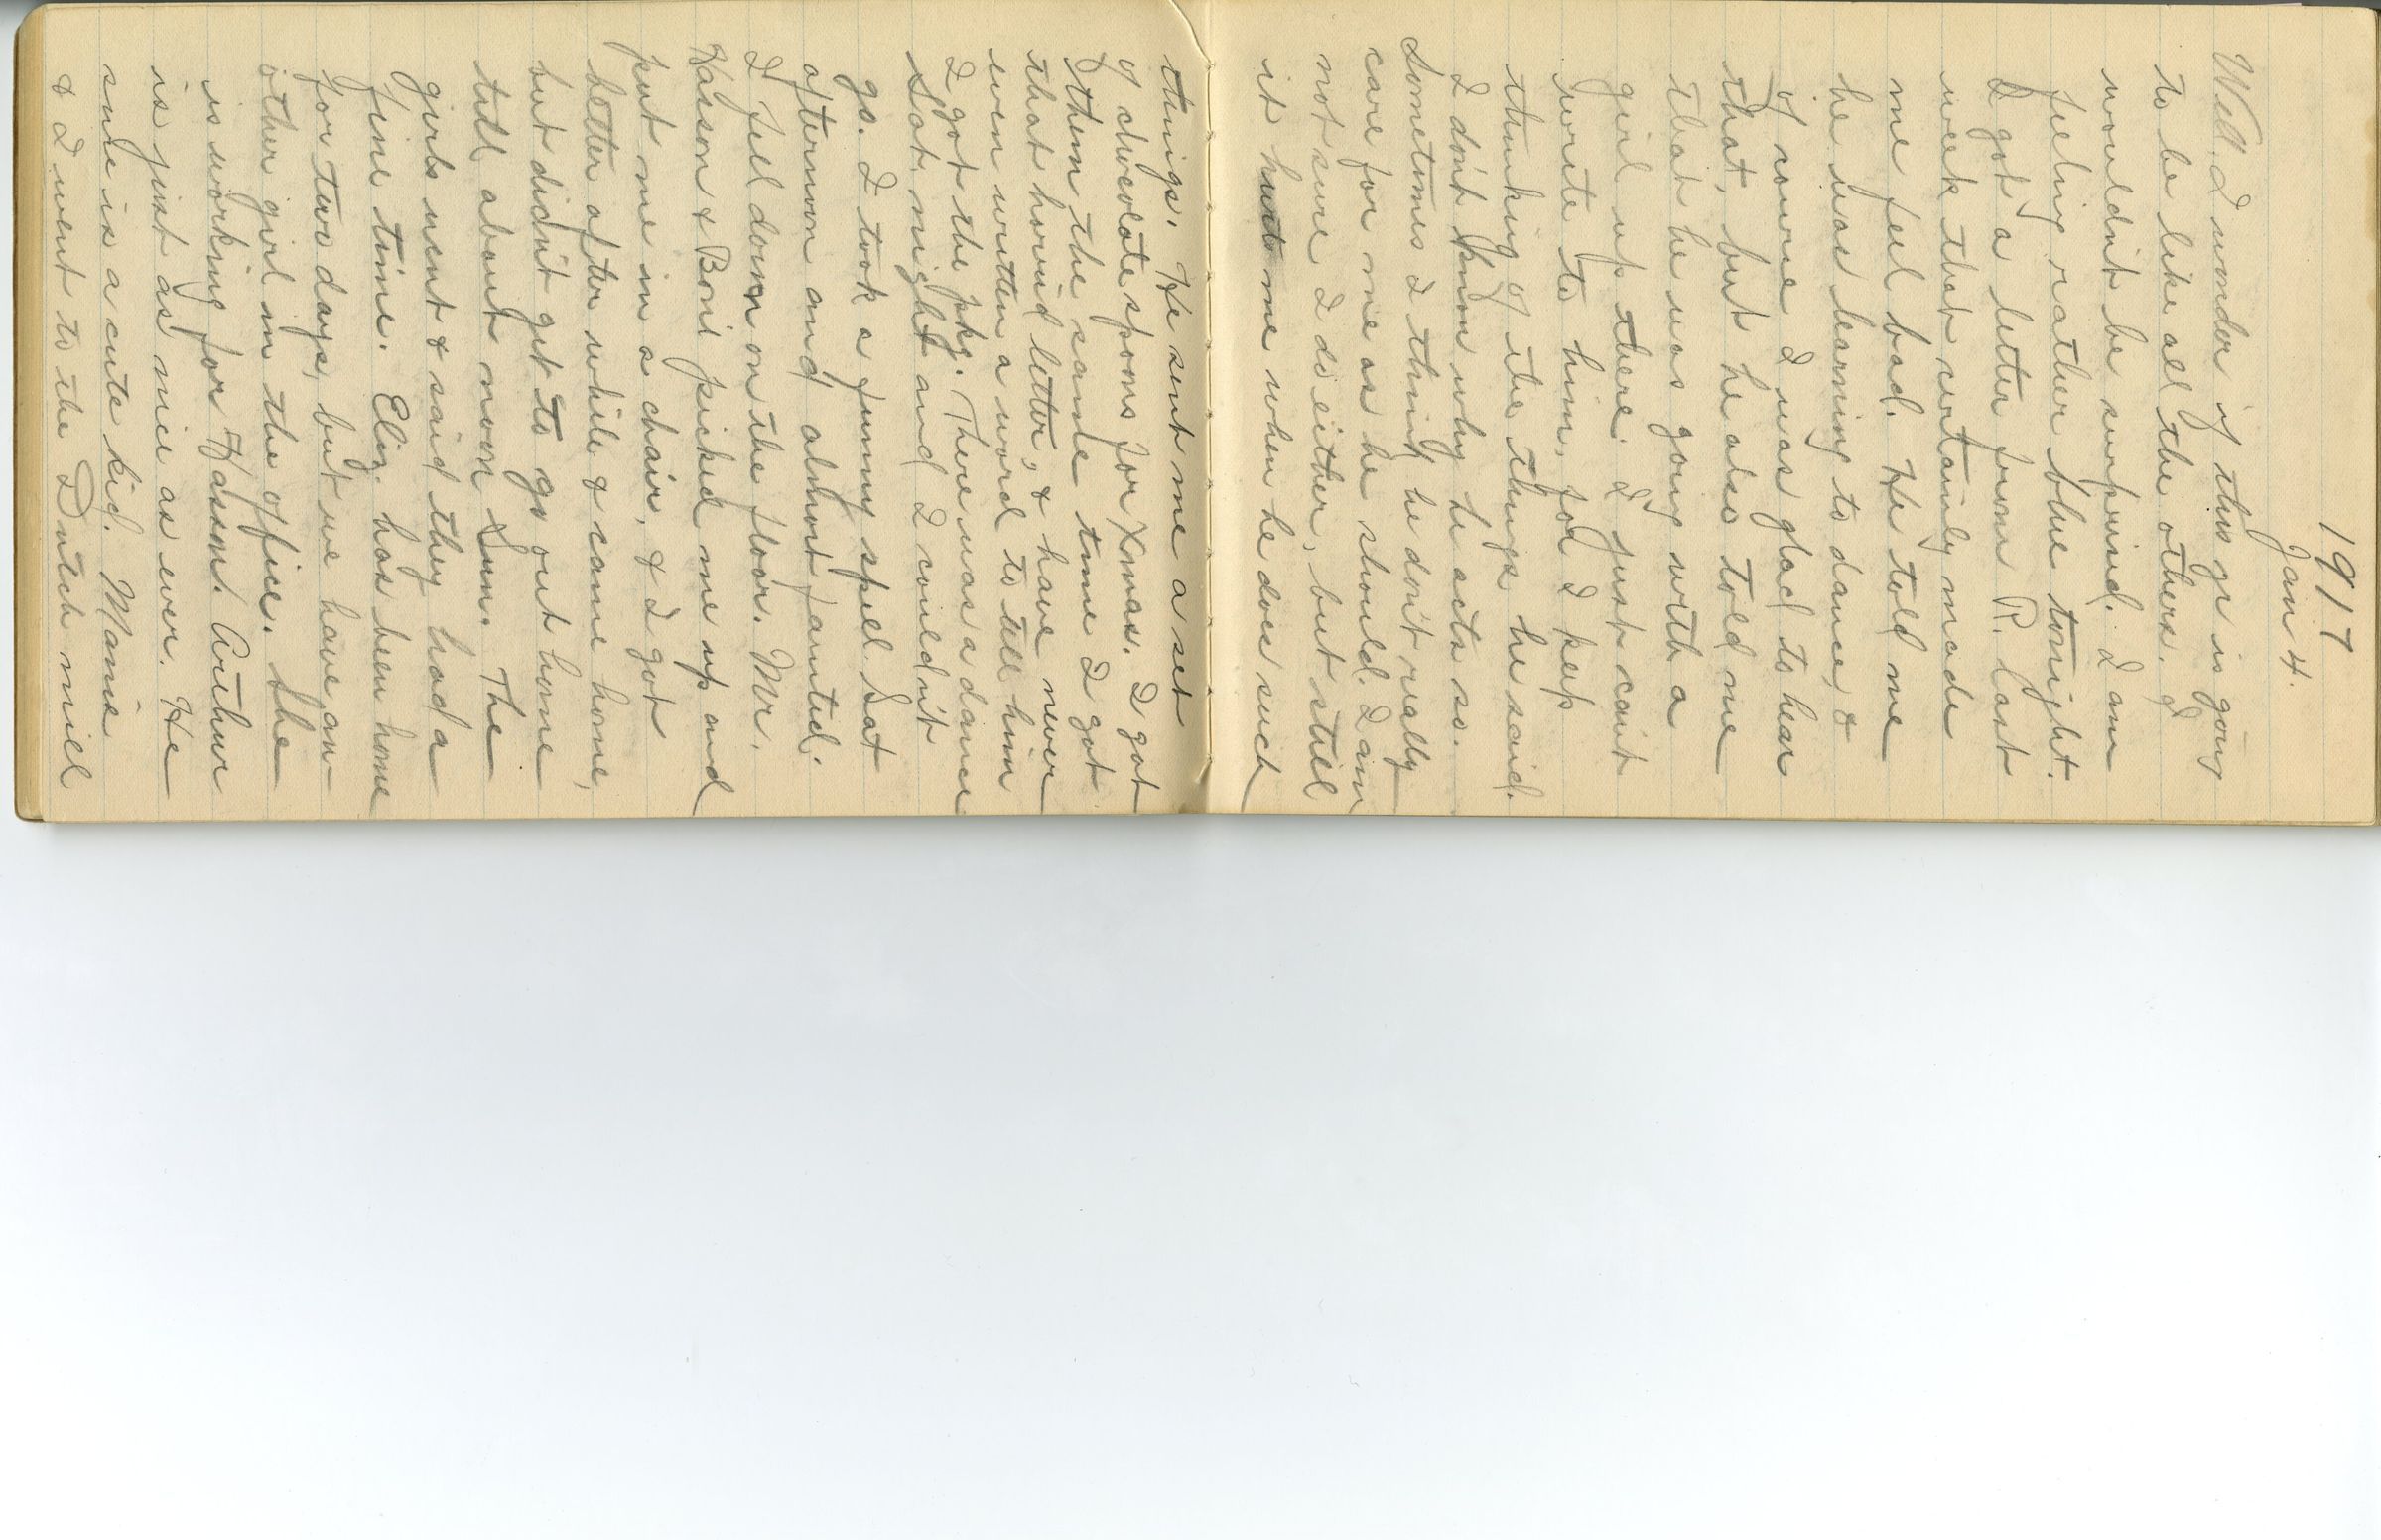 1917
Jan 4.
Well, I wonder if this yr is going
to be like all the others. I
wouldn't be surprised. I am
feeling rather blue tonight.
I got a letter from R. last
week that certainly made
me feel bad. He told me
he was learning to dance, &
of course I was glad to hear
that, but he also told me
that he was going with a
girl up there. I just can't
write to him, for I keep
thinking of the things he said.
I don't know why he acts so.
Sometimes I think he don't really
care for me as he should. I am
not sure I do either, but still
it hurts me when he does such
things. He sent me a set
of chocolate spoons for Xmas. I got
them the same time I got
that horrid letter, & have never
even written a word to tell him
I got the pkg. There was a dance
Sat. night and I couldn't
go. I took a funny spell Sat
afternoon and almost fainted.
I fell down on the floor. Mr.
Hasson & Boni picked me up and
put me in a chair, & I got
better after while & came home,
but didn't get to go out home
till about noon Sun. The
girls went & said they had a
fine time. Eliz. has been home
for two days, but we have an-
other girl in the office. She
is working for Hasson. Arthur
is just as nice as ever. He
sure is a cute kid. Mamie
& I went to the Dutch mill